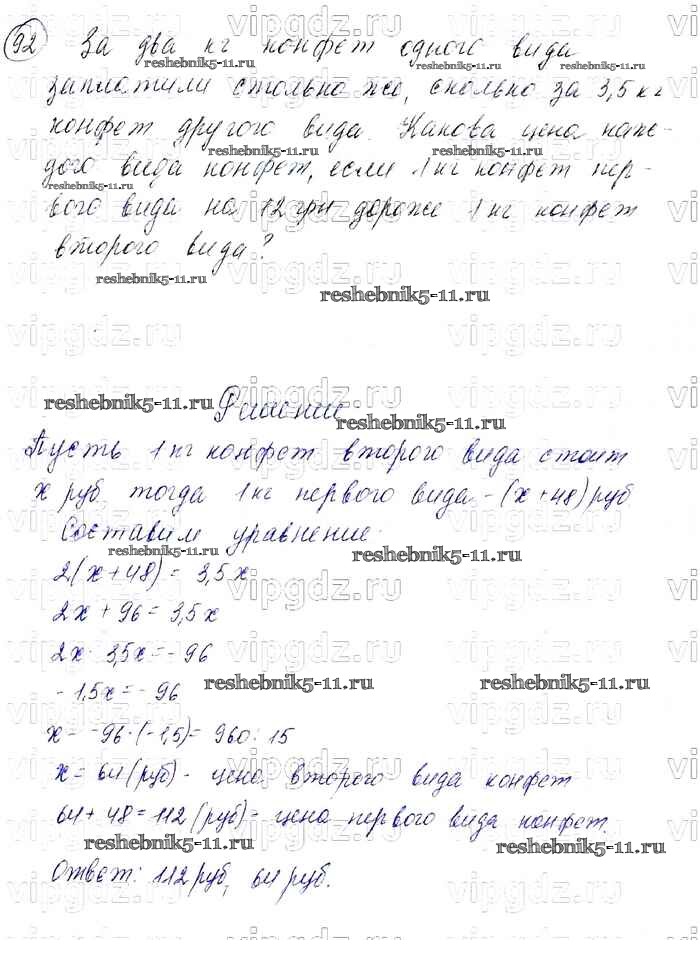 92 За два кг конфет одного вида
заплатили столько же, сколько за 3,5 кг
конфет другого вида. Какова цена каж-
дого вида конфет, если 1 кг конфет пер-
вого вида на 12 грн дороже 1 кг конфет
второго вида?
Решение.
Пусть 1 кг конфет второго вида стоит
x руб тогда 1 кг первого вида - (x+48) руб
Составим уравнение.
2(x+48) = 3,5x
2x + 96 = 3,5x
2x - 3,5x = - 96
- 1,5x = - 96
x = -96 : (-1,5) = 960 : 15
x = 64 (руб) - цена второго вида конфет
64 + 48 = 112 (руб) - цена первого вида конфет.
Ответ: 112 руб, 64 руб.
reshebnik5-11.ru
vipgdz.ru